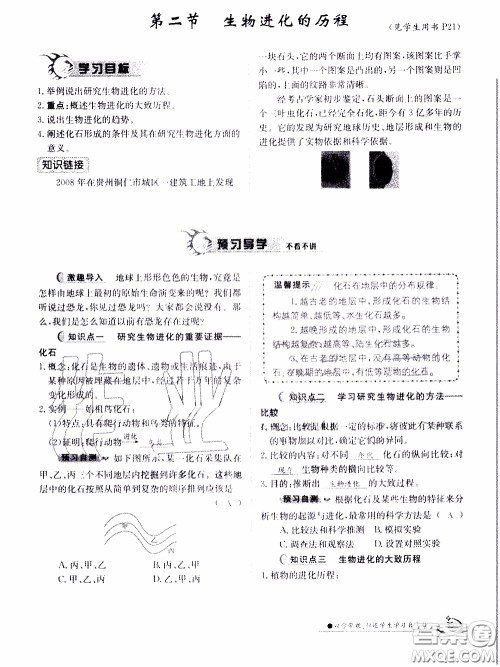 第二节 生物进化的历程
(见学生用书 P21)
学习目标
1. 举例说出研究生物进化的方法。
2. 重点:概述生物进化的大致历程。
3. 说出生物进化的趋势。
4. 阐述化石形成的条件及其在研究生物进化方面的
意义。
知识链接
2008 年在贵州铜仁市城区一建筑工地上发现
一块石头,它的两个断面上均有图案,该图案比手掌
小一些,一个断面的图案是凸起的,一个断面则是凹
陷的,上面的纹路非常清晰。
经考古学家初步鉴定,石头断面上的图案是一
个三叶虫化石,已经完全石化,距今有 3 亿多年的历
史。它的发现,为研究地球历史、地层形成和生物的
进化提供了实物依据和科学依据。
预习导学 不看不讲
激趣导入 地球上形形色色的生物,究竟是
怎样由地球上最初的原始生命演变来的呢?我们都
听过《恐龙》的故事,那么到底有没有恐龙存在过呢?
我们是怎么知道以前有恐龙存在过呢?
知识点一 研究生物进化的重要证据——
化石
1. 概念:化石是生物的遗体、遗物或生活痕迹,由于
某种原因被埋藏在地层中,经过若干万年的复杂
变化形成的。
2. 实例——始祖鸟化石:
(1)特点:具有爬行动物和鸟类的特征。
(2)证明:爬行动物 进化 鸟类
预习自测 如下图所示,某一化石采集队在
甲、乙、丙三个不同地层内挖掘到许多化石。这些地
层中的化石按照从简单到复杂的顺序排列应该是
A. 丙、甲、乙 B. 甲、丙、乙
C. 乙、甲、丙 D. 甲、乙、丙
温馨提示 化石在地层中的分布规律:
1. 越古老的地层中,形成化石的生物结
构越简单、越低等、水生生物的化石越多。
2. 越晚形成的地层中,形成化石的生物
结构越复杂、越高等、陆生生物化石越多。
3. 在古老的地层中,没有高等生物的化
石,在晚期的地层中,有低等动物的化石。
知识点二 学习研究生物进化的方法——
比较
1. 概念:根据一定的标准,将彼此有某种联系
的事物加以对比。
2. 比较的内容:对不同 年代 化石的纵向比较;对
现存 生物种类的横向比较等。
3. 目的:推断出 生物进化 的大致过程。
预习自测 根据化石及某些生物的特征来分
析生物的起源与进化,最常用的科学方法是 ( A )
A. 比较法和科学推测 B. 模拟实验
C. 调查法和观察法 D. 设置对照实验
知识点三 生物进化的大致历程
1. 植物的进化历程: